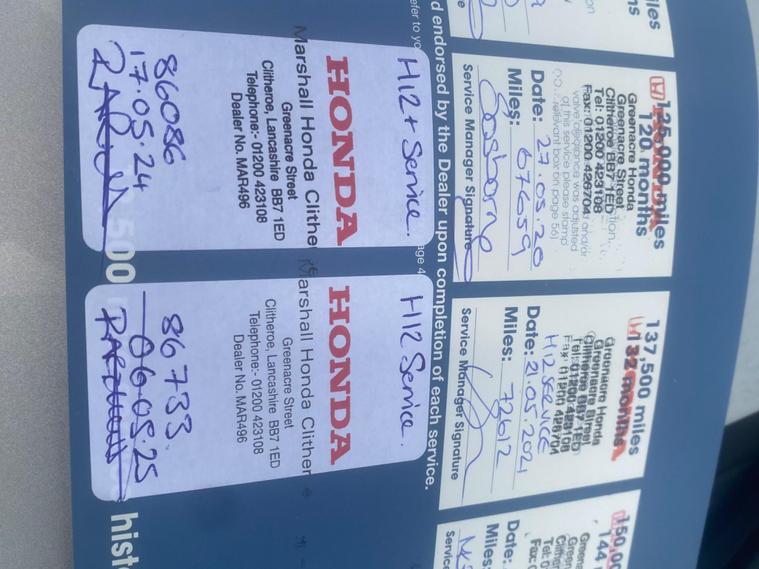 H12 + Service.
HONDA
Marshall Honda Clither
Greenacre Street
Clitheroe, Lancashire BB7 1ED
Telephone:- 01200 423108
Dealer No. MAR496
86086
17.05.24
H12 Service.
HONDA
Marshall Honda Clither
Greenacre Street
Clitheroe, Lancashire BB7 1ED
Telephone:- 01200 423108
Dealer No. MAR496
86733
06.05.25
500
hist
d endorsed by the Dealer upon completion of each service.
efer to yo
age 4
125,000 miles
120 months
Greenacre Honda
Greenacre Street
Clitheroe BB7 1ED
Tel: 01200 423108
Fax: 01200 428704
valve clearance was adjusted
at this service please stamp
relevant box on page 56)
Date: 27.05.20
Miles: 67659
Service Manager Signature
137,500 miles
132 months
Greenacre Honda
Greenacre Street
Clitheroe BB7 1ED
Tel: 01200 423108
Fax: 01200 428704
H12 SERVICE
Date: 21.05.2021
Miles: 72612
Service Manager Signature
150,0
144
Date:
Miles:
Service
iles
ns